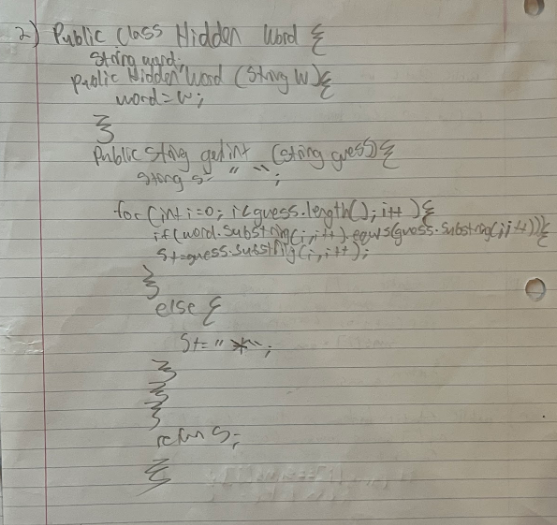 2) Public Class Hidden Word {
String word;
Public Hidden Word (String W){
word=w;
}
Public String getint (String guess){
String s= " ";
for (int i=0; i<guess.length(); i++){
if (word.substring(i,i++).equals(guess.substring(i,i++)){
s+=guess.substring(i,i++);
}
else {
S+= "*";
}
}
}
return S;
}